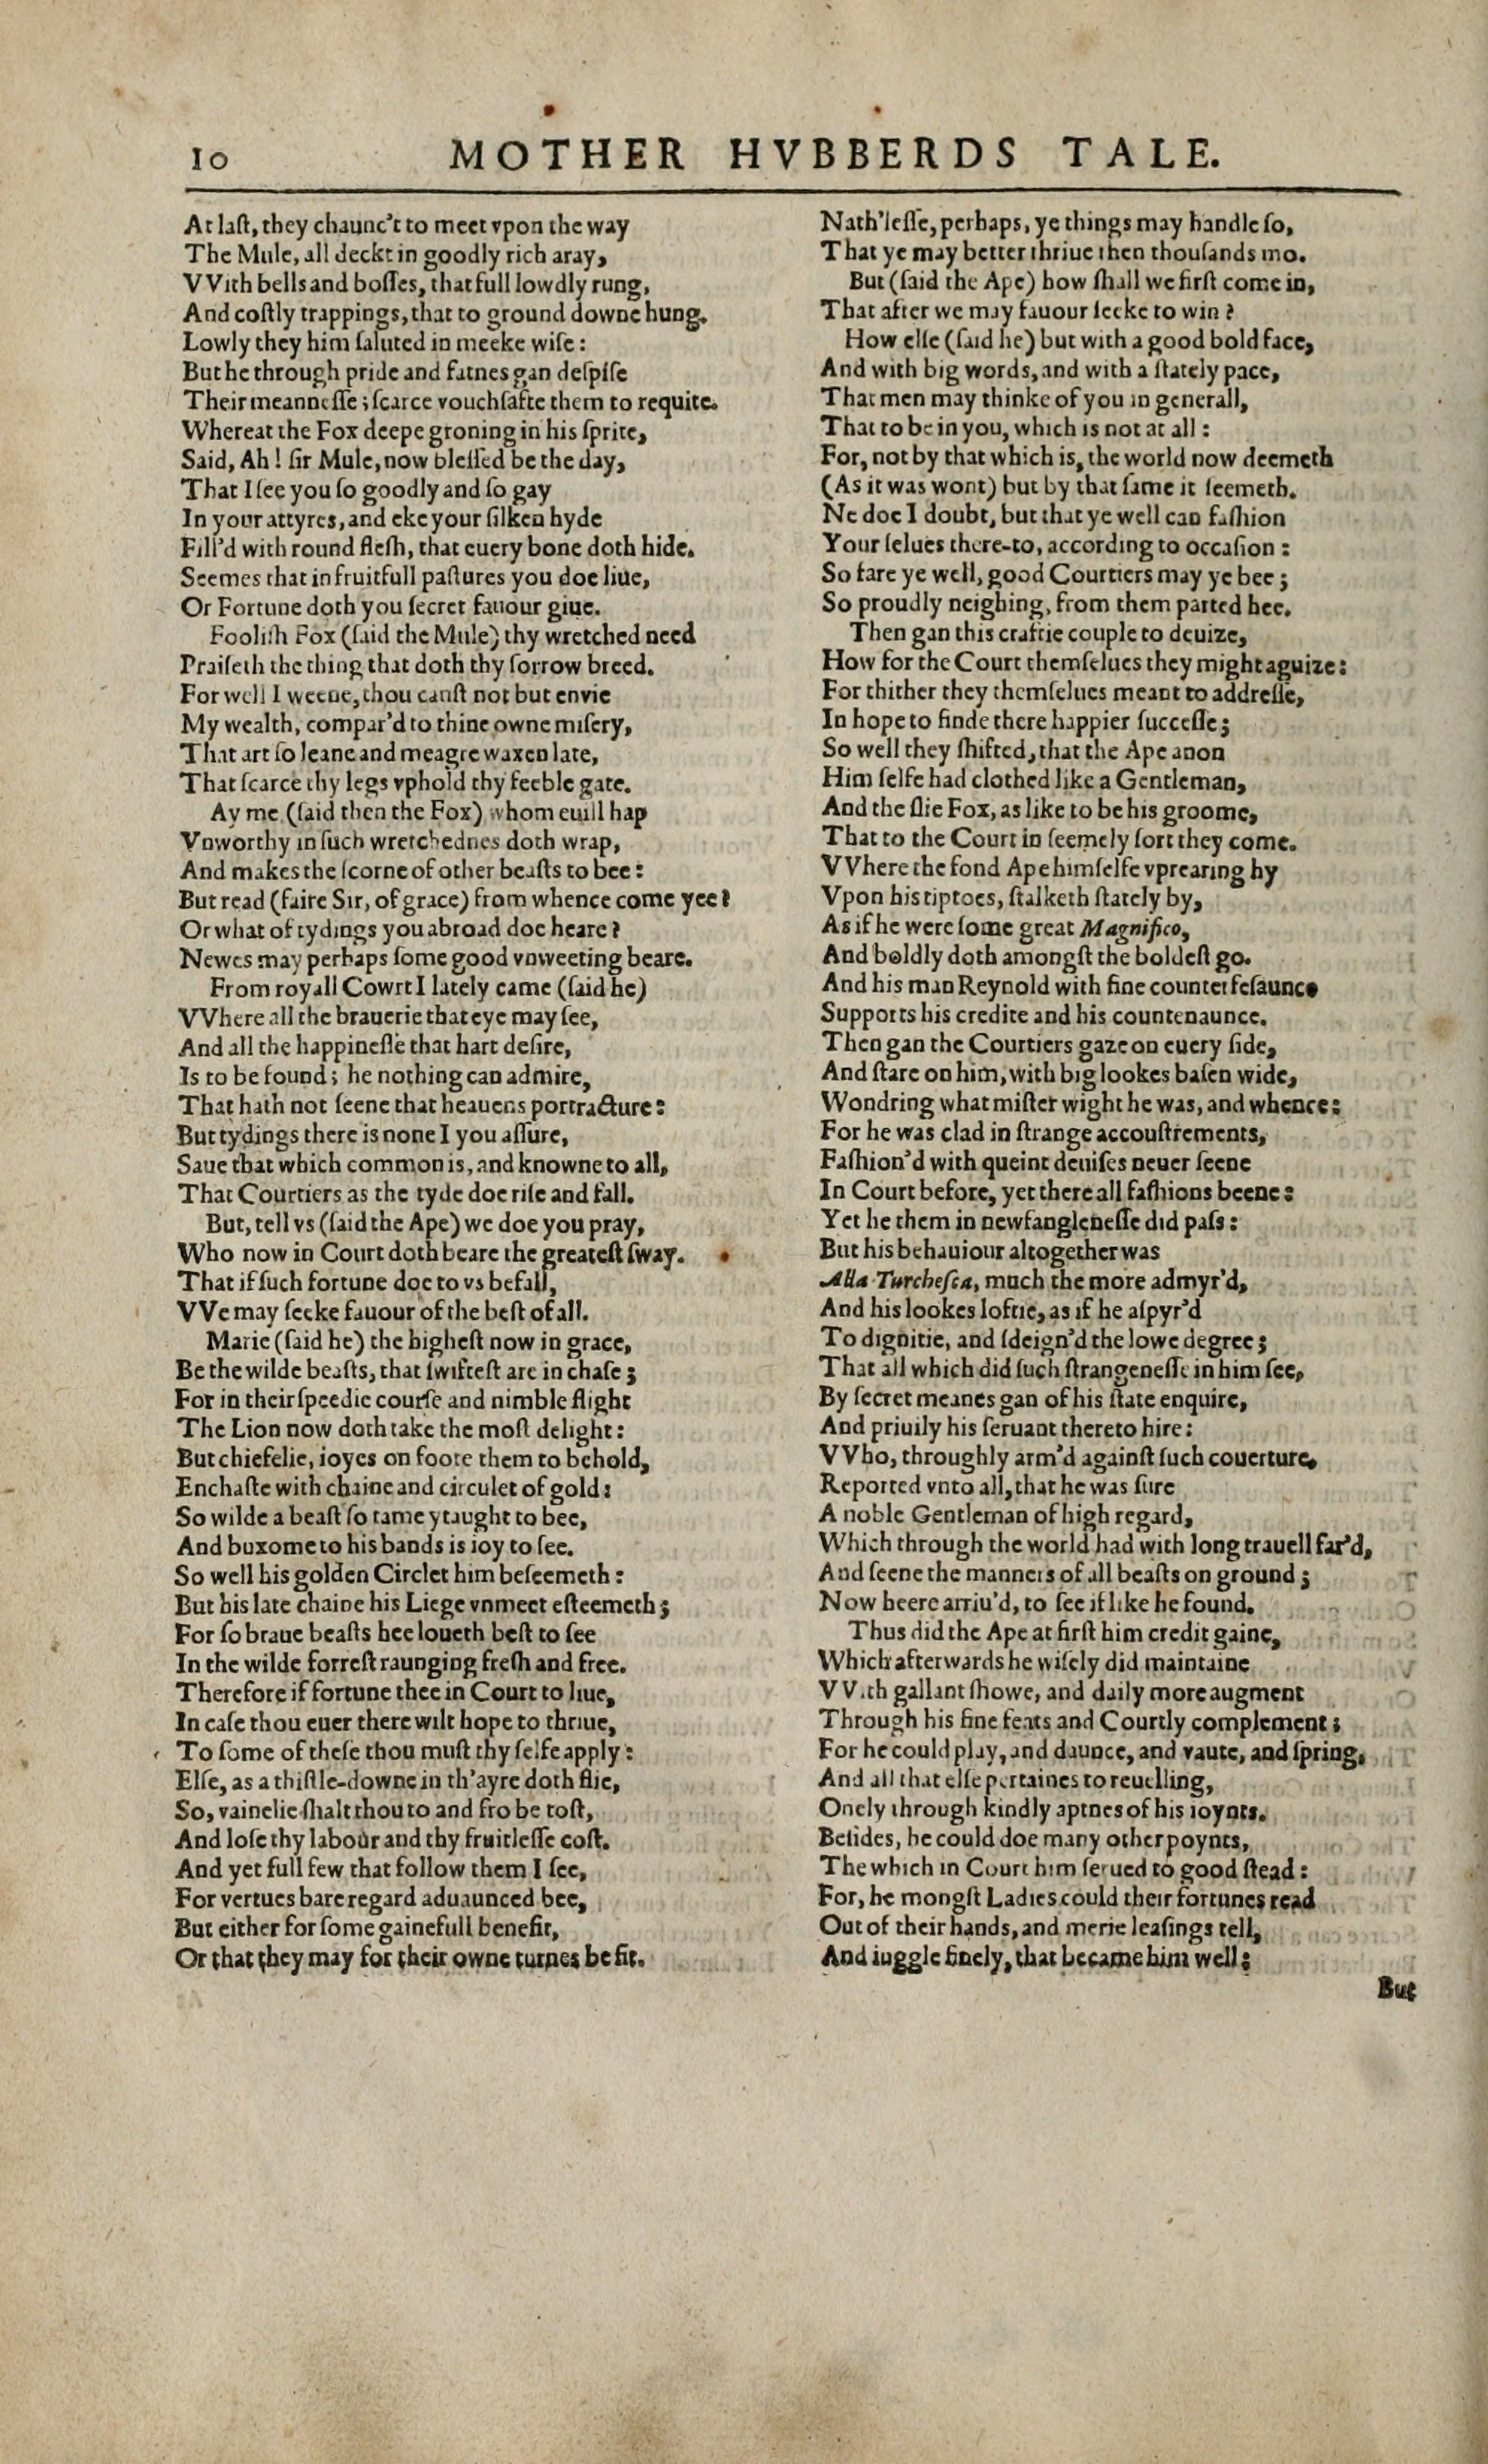 10 MOTHER HVBBERDS TALE.
At laſt, they chaunc't to meet vpon the way
The Mule, all deckt in goodly rich aray,
VVith bells and boſſes, that full lowdly rung,
And coſtly trappings, that to ground downe hung.
Lowly they him ſaluted in meeke wiſe:
But he through pride and fatnes gan deſpiſe
Their meanneſſe; ſcarce vouchſafte them to requite.
Whereat the Fox deepe groning in his ſprite,
Said, Ah! ſir Mule, now bleſſed be the day,
That I ſee you ſo goodly and ſo gay
In your attyres, and eke your ſilken hyde
Fill'd with round fleſh, that euery bone doth hide.
Seemes that in fruitfull paſtures you doe liue,
Or Fortune doth you ſecret fauour giue.
Fooliſh Fox (ſaid the Mule) thy wretched need
Praiſeth the thing that doth thy ſorrow breed.
For well I weene, thou canſt not but envie
My wealth, compar'd to thine owne miſery,
That art ſo leane and meagre waxen late,
That ſcarce thy legs vphold thy feeble gate.
Ay me (ſaid then the Fox) whom euill hap
Vnworthy in ſuch wretchednes doth wrap,
And makes the ſcorne of other beaſts to bee:
But read (faire Sir, of grace) from whence come yee?
Or what of tydings you abroad doe heare?
Newes may perhaps ſome good vnweeting beare.
From royall Cowrt I lately came (ſaid he)
VVhere all the brauerie that eye may ſee,
And all the happineſſe that hart deſire,
Is to be found; he nothing can admire,
That hath not ſeene that heauens portracture:
But tydings there is none I you aſſure,
Saue that which common is, and knowne to all,
That Courtiers as the tyde doe riſe and fall.
But, tell vs (ſaid the Ape) we doe you pray,
Who now in Court doth beare the greateſt ſway.
That if ſuch fortune doe to vs befall,
VVe may ſeeke fauour of the beſt of all.
Marie (ſaid he) the higheſt now in grace,
Be the wilde beaſts, that ſwifteſt are in chaſe;
For in their ſpeedie courſe and nimble flight
The Lion now doth take the moſt delight:
But chiefelie, ioyes on foote them to behold,
Enchaſte with chaine and circulet of gold:
So wilde a beaſt ſo tame ytaught to bee,
And buxome to his bands is ioy to ſee.
So well his golden Circlet him beſeemeth:
But his late chaine his Liege vnmeet eſteemeth;
For ſo braue beaſts hee loueth beſt to ſee
In the wilde forreſt raunging freſh and free.
Therefore if fortune thee in Court to liue,
In caſe thou euer there wilt hope to thriue,
To ſome of theſe thou muſt thy ſelfe apply:
Elſe, as a thiſtle-downe in th'ayre doth flie,
So, vainelie ſhalt thou to and fro be toſt,
And loſe thy labour and thy fruitleſſe coſt.
And yet full few that follow them I ſee,
For vertues bare regard aduaunced bee,
But either for ſome gainefull benefit,
Or that they may for their owne turnes be fit.
Nath'leſſe, perhaps, ye things may handle ſo,
That ye may better thriue then thouſands mo.
But (ſaid the Ape) how ſhall we firſt come in,
That after we may fauour ſeeke to win?
How elſe (ſaid he) but with a good bold face,
And with big words, and with a ſtately pace,
That men may thinke of you in generall,
That to be in you, which is not at all:
For, not by that which is, the world now deemeth
(As it was wont) but by that ſame it ſeemeth.
Ne doe I doubt, but that ye well can faſhion
Your ſelues there-to, according to occaſion:
So fare ye well, good Courtiers may ye bee;
So proudly neighing, from them parted hee.
Then gan this craftie couple to deuize,
How for the Court themſelues they might aguize:
For thither they themſelues meant to addreſſe,
In hope to finde there happier ſucceſſe;
So well they ſhifted, that the Ape anon
Him ſelfe had clothed like a Gentleman,
And the ſlie Fox, as like to be his groome,
That to the Court in ſeemely ſort they come.
VVhere the fond Ape himſelfe vprearing hy
Vpon his tiptoes, ſtalketh ſtately by,
As if he were ſome great Magnifico,
And boldly doth amongſt the boldeſt go.
And his man Reynold with fine counterfeſaunce
Supports his credite and his countenaunce.
Then gan the Courtiers gaze on euery ſide,
And ſtare on him, with big lookes baſen wide,
Wondring what miſter wight he was, and whence:
For he was clad in ſtrange accouſtrements,
Faſhion'd with queint deuiſes neuer ſeene
In Court before, yet there all faſhions beene:
Yet he them in newfangleneſſe did paſs:
But his behauiour altogether was
Alla Turcheſca, much the more admyr'd,
And his lookes loftie, as if he aſpyr'd
To dignitie, and ſdeign'd the lowe degree;
That all which did ſuch ſtrangeneſſe in him ſee,
By ſecret meanes gan of his ſtate enquire,
And priuily his ſeruant thereto hire:
VVho, throughly arm'd againſt ſuch couerture,
Reported vnto all, that he was ſure
A noble Gentleman of high regard,
Which through the world had with long trauell far'd,
And ſeene the manners of all beaſts on ground;
Now heere arriu'd, to ſee if like he found.
Thus did the Ape at firſt him credit gaine,
Which afterwards he wiſely did maintaine
VVith gallant ſhowe, and daily more augment
Through his fine feats and Courtly complement;
For he could play, and daunce, and vaute, and ſpring,
And all that elſe pertaines to reuelling,
Onely through kindly aptnes of his ioynts.
Beſides, he could doe many other poynts,
The which in Court him ſerued to good ſtead:
For, he mongſt Ladies could their fortunes read
Out of their hands, and merie leaſings tell,
And iuggle finely, that became him well:
But